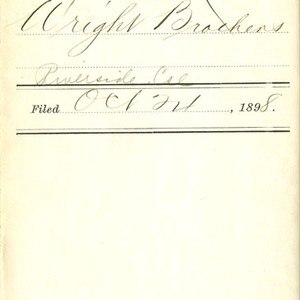 Wright Brothers
Riverside, Cal
Filed Oct 24, 1898.